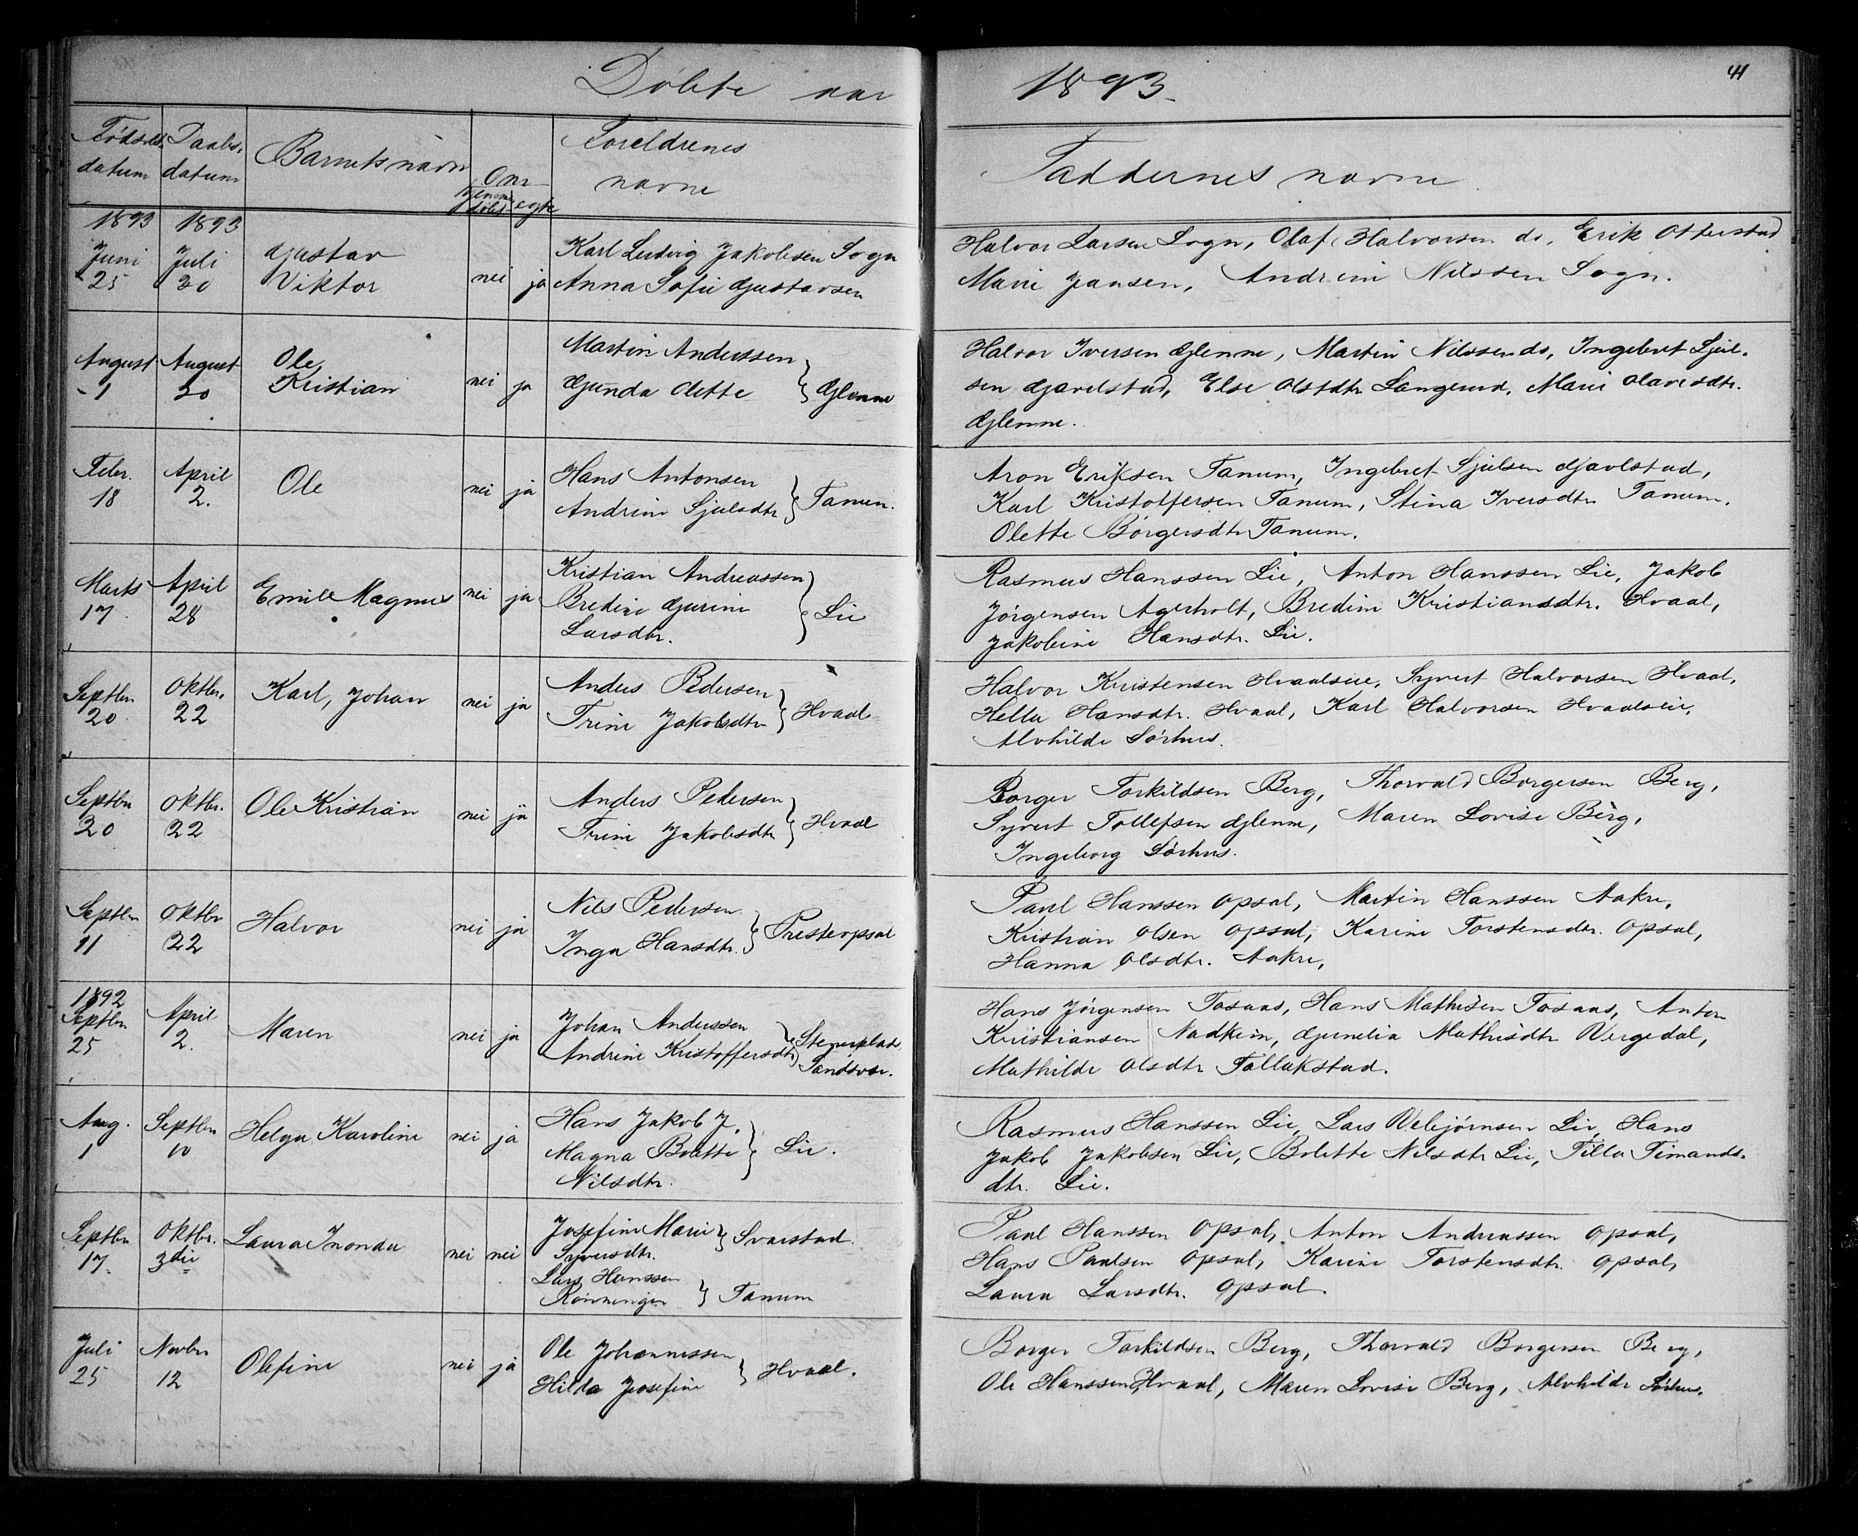 Døbte aar 1893.
41
Fødsels datum
Daabs datum
Barnets navn
Om
hjemme døbt
egte
Foreldrenes navne
Faddernes navne
1893
Juni
25
1893
Juli
30
Gustav
Viktor
nei
ja
Karl Ludvig Jakobsen Sogn
Anna Sofie Gustavsen
Halvor Larsen Sogn, Olaf Halvorsen do, Erik Otterstad
Marie Jansen, Andrine Nilssen Sogn.
August
1
August
20
Ole
Kristian
nei
ja
Martin Anderssen
Gunda Olette } Glenne
Halvor Iversen Glenne, Martin Nilssen do, Ingebret Sjul-
sen Gjavelstad, Else Olsdtr Langerud, Marie Olavesdtr.
Glenne.
Febr.
18
April
2.
Ole
nei
ja
Hans Antonsen
Andrine Sjulsdtr } Tanum.
Aron Eriksen Tanum, Ingebret Sjulsen Gjavlstad,
Karl Kristoffersen Tanum, Stina Iversdtr Tanum.
Olette Børgersdtr Tanum.
Marts
17.
April
28
Emil Magnus
nei
ja
Kristian Andreassen
Bredine Gurine
Larsdtr. } Lie
Rasmus Hanssen Lie, Anton Hanssen Lie, Jakob
Jørgensen Agerholt, Bredine Kristiansdtr. Hvaal,
Jakobine Hansdtr. Lie.
Septbr
20
Oktbr.
22
Karl, Johan
nei
ja
Anders Pedersen
Trine Jakobsdtr } Hvaal
Halvor Kristensen Hvaalseie, Syvert Halvorsen Hvaal,
Hella Hansdtr. Hvaal, Karl Halvorsen Hvaalseie,
Alvhilde Sørhus.
Septbr
20
Oktbr.
22
Ole Kristian
nei
ja
Anders Pedersen
Trine Jakobsdtr } Hvaal
Borger Torkildsen Berg, Thorvald Borgersen Berg,
Syvert Tollefsen Glenne, Maren Lovise Berg,
Ingeborg Sørhus.
Septbr
11
Oktbr
22
Halvor
nei
ja
Nils Pedersen
Inga Hansdtr. } Presteopsal
Paul Hanssen Opsal, Martin Hanssen Aakre,
Kristian Olsen Opsal, Karine Torstensdtr. Opsal,
Hanna Olsdtr. Aakre,
1892
Septbr
25
April
2.
Maren
nei
ja
Johan Anderssen
Andrine Kristoffersdtr } Stenersplads Sandsvær.
Hans Jørgensen Tosaas, Hans Mathisen Tosaas, Anton
Kristiansen Nadheim, Gunelia Mathisdtr Vergedal,
Mathilde Olsdtr Tollakstad.
Aug.
1
Septbr
10
Helga Karoline
nei
ja
Hans Jakob J.
Magna Bolette
Nilsdtr. } Lie.
Rasmus Hanssen Lie, Lars Vebjørnsen Lie, Hans
Jakob Jakobsen Lie, Bolette Nilsdtr Lie, Tilla Timands-
dtr. Lie.
Septbr
17.
Oktbr.
3die
Laura Inanda
nei
nei
Josefine Marie
Syversdtr. } Svarstad
Lars Hanssen
Rønningen } Tanum
Paul Hanssen Opsal, Anton Andreassen Opsal,
Hans Paulsen Opsal, Karine Torstensdtr. Opsal,
Laura Larsdtr. Opsal.
Juli
25
Novbr
12
Olefine
nei
ja
Ole Johannessen
Hilda Josefine } Hvaal.
Borger Torkildsen Berg, Thorvald Borgersen Berg,
Ole Hanssen Hvaal, Maren Lovise Berg, Alvhilde Sørhus.